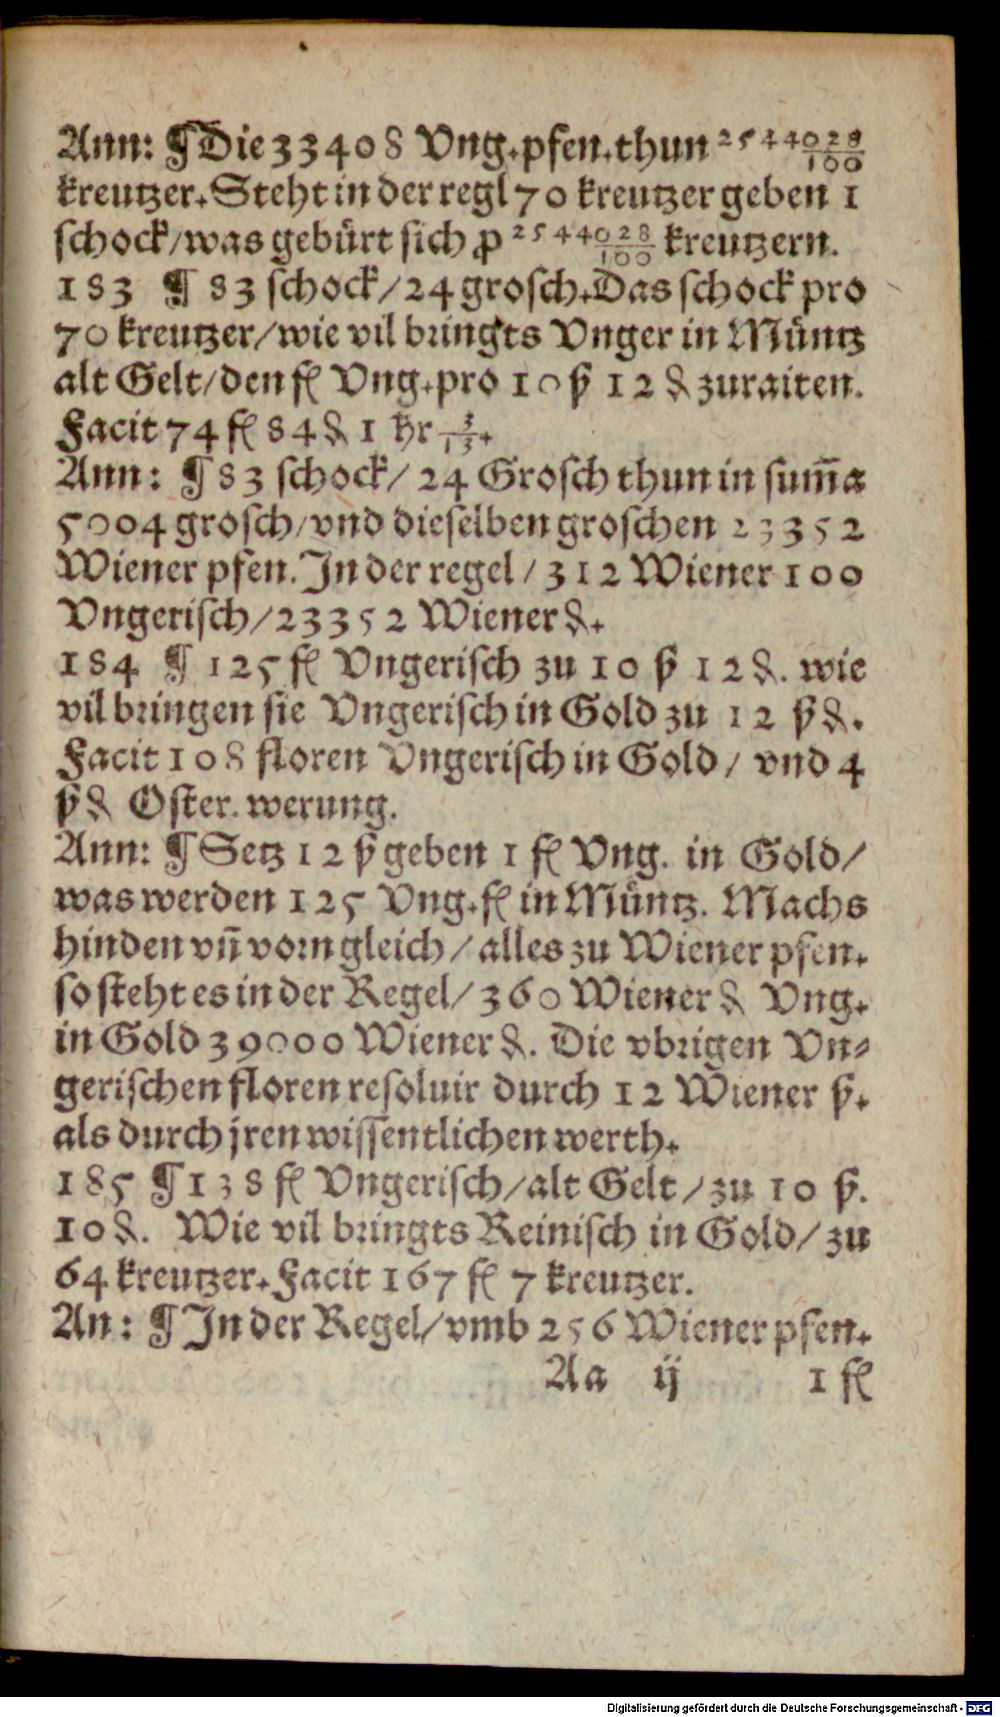 Ann: ¶ Die 33408 Vng.pfen.thun 25440 28/100
kreutzer. Steht in der regl 70 kreutzer geben 1
schock/was gebürt sich ꝓ 25440 28/100 kreutzern.
183 ¶ 83 schock/24 grosch. Das schock pro
70 kreutzer/wie vil bringts Vnger in Müntz
alt Gelt/den fl Vng.pro 10 ß 12 ₰ zuraiten.
Facit 74 fl 84 ₰ 1 hr 3/13.
Ann: ¶ 83 schock/ 24 Grosch thun in sum̄a
5004 grosch/vnd dieselben groschen 23352
Wiener pfen. In der regel/312 Wiener 100
Vngerisch/23352 Wiener ₰.
184 ¶ 125 fl Vngerisch zu 10 ß 12 ₰. wie
vil bringen sie Vngerisch in Gold zu 12 ß ₰.
Facit 108 floren Vngerisch in Gold/ vnd 4
ß ₰ Oster. werung.
Ann: ¶ Setz 12 ß geben 1 fl Vng. in Gold/
was werden 125 Vng.fl in Müntz. Machs
hinden vn̄ vorn gleich/alles zu Wiener pfen.
so steht es in der Regel/360 Wiener ₰ Vng.
in Gold 39000 Wiener ₰. Die vbrigen Vn⸗
gerischen floren resoluir durch 12 Wiener ß.
als durch jren wissentlichen werth.
185 ¶ 138 fl Vngerisch/alt Gelt/zu 10 ß.
10 ₰. Wie vil bringts Reinisch in Gold/ zu
64 kreutzer. Facit 167 fl 7 kreutzer.
An: ¶ In der Regel/vmb 256 Wiener pfen.
Aa ij 1 fl
Digitalisierung gefördert durch die Deutsche Forschungsgemeinschaft - DFG